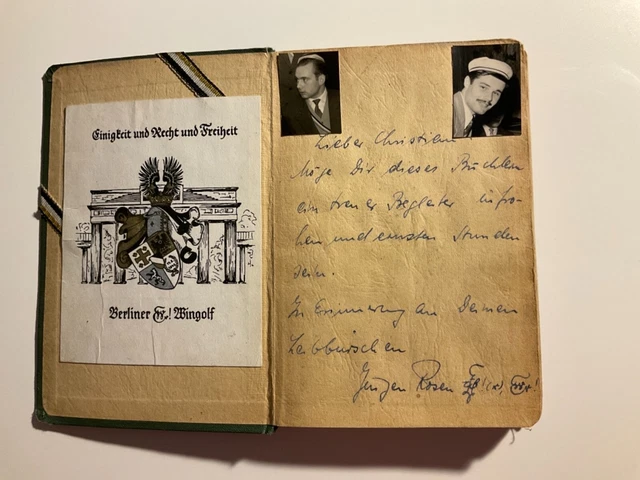 Einigkeit und Recht und Freiheit
Berliner Wingolf
Lieber Christian
Möge Dir dieses Büchlein
ein treuer Begleiter in fro-
hen und ernsten Stunden
sein.
In Erinnerung an Deinen
Leibburschen
Jürgen Rosen